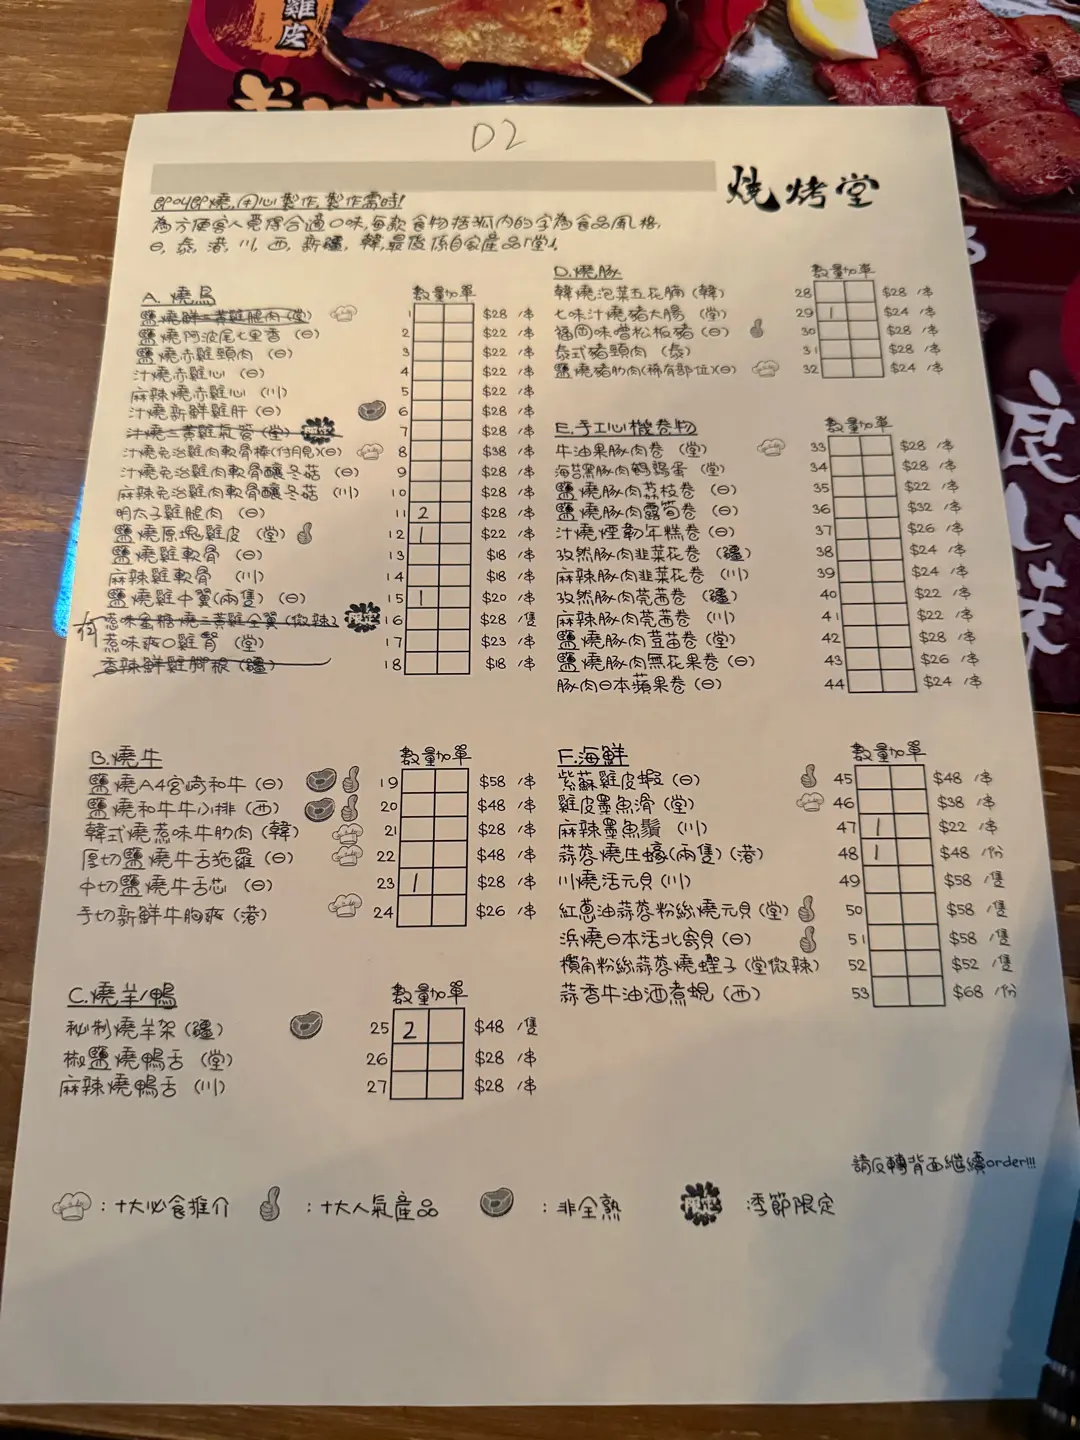 雞皮
D2
燒烤堂
即叫即燒,用心製作,製作需時!
為方便客人覓得合適口味,每款食物括弧内的字為食品風格,
日, 泰, 港, 川, 西, 新疆, 韓,最後係自家產品「堂」
A. 燒鳥 數量 加單
鹽燒鮮三黃雞腿肉(堂) 1 $28 /串
鹽燒阿波尾七里香 (日) 2 $22 /串
鹽燒赤雞頸肉 (日) 3 $22 /串
汁燒赤雞心 (日) 4 $22 /串
麻辣燒赤雞心 (川) 5 $22 /串
汁燒新鮮雞肝 (日) 6 $28 /串
汁燒三黃雞氣管 (堂) 限定 7 $28 /串
汁燒免治雞肉軟骨棒(付月見)(日) 8 $38 /串
汁燒免治雞肉軟骨釀冬菇 (日) 9 $28 /串
麻辣免治雞肉軟骨釀冬菇 (川) 10 $28 /串
明太子雞腿肉 (日) 11 2 $28 /串
鹽燒原塊雞皮 (堂) 12 1 $22 /串
鹽燒雞軟骨 (日) 13 $18 /串
麻辣雞軟骨 (川) 14 $18 /串
鹽燒雞中翼(兩隻) (日) 15 1 $20 /串
有 惹味蜜糖燒三黃雞全翼 (微辣) 限定 16 $28 /隻
惹味爽口雞腎 (堂) 17 $23 /串
香辣鮮雞腳根 (疆) 18 $18 /串
B.燒牛 數量 加單
鹽燒A4宮崎和牛 (日) 19 $58 /串
鹽燒和牛牛小排 (西) 20 $48 /串
韓式燒惹味牛肋肉 (韓) 21 $28 /串
厚切鹽燒牛舌拖羅 (日) 22 $48 /串
中切鹽燒牛舌芯 (日) 23 1 $28 /串
手切新鮮牛胸爽 (港) 24 $26 /串
C.燒羊/鴨 數量 加單
秘制燒羊架 (疆) 25 2 $48 /隻
椒鹽燒鴨舌 (堂) 26 $28 /串
麻辣燒鴨舌 (川) 27 $28 /串
D.燒豚 數量 加單
韓燒泡菜五花腩 (韓) 28 $28 /串
七味汁燒豬大腸 (堂) 29 1 $24 /串
福岡味噌松板豬 (日) 30 $28 /串
泰式豬頸肉 (泰) 31 $28 /串
鹽燒豬肋肉(稀有部位)(日) 32 $24 /串
E.手工心機卷物 數量 加單
牛油果豚肉卷 (堂) 33 $28 /串
海苔黑豚肉鵪鶉蛋 (堂) 34 $28 /串
鹽燒豚肉荔枝卷 (日) 35 $22 /串
鹽燒豚肉露筍卷 (日) 36 $32 /串
汁燒煙韌年糕卷 (日) 37 $26 /串
孜然豚肉韭菜花卷 (疆) 38 $24 /串
麻辣豚肉韭菜花卷 (川) 39 $24 /串
孜然豚肉莞茜卷 (疆) 40 $22 /串
麻辣豚肉莞茜卷 (川) 41 $22 /串
鹽燒豚肉荳苗卷 (堂) 42 $28 /串
鹽燒豚肉無花果卷 (日) 43 $26 /串
豚肉日本蘋果卷 (日) 44 $24 /串
F.海鮮 數量 加單
紫蘇雞皮蝦 (日) 45 $48 /串
雞皮墨魚滑 (堂) 46 $38 /串
麻辣墨魚鬚 (川) 47 1 $22 /串
蒜蓉燒生蠔(兩隻) (港) 48 1 $48 /份
川燒活元貝 (川) 49 $58 /隻
紅蔥油蒜蓉粉絲燒元貝 (堂) 50 $58 /隻
浜燒日本活北寄貝 (日) 51 $58 /隻
欖角粉絲蒜蓉燒蟶子 (堂微辣) 52 $52 /隻
蒜香牛油酒煮蜆 (西) 53 $68 /份
請反轉背面繼續order!!!
: 十大必食推介 : 十大人氣產品 : 非全熟 限定 季節限定